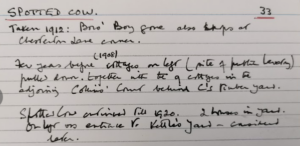 SPOTTED COW. 33
Taken 1912: Boro' Boy gone also shops at
Chesterton Lane corner.
Few years before (1908) cottages on left (site of public lavatory)
pulled down. Together with the of cottages in the
adjoining Collins' Court behind C's timber yard.
Spotted Cow continued till 1920. 2 houses in yard.
On left was entrance to Kettle's Yard -
later.